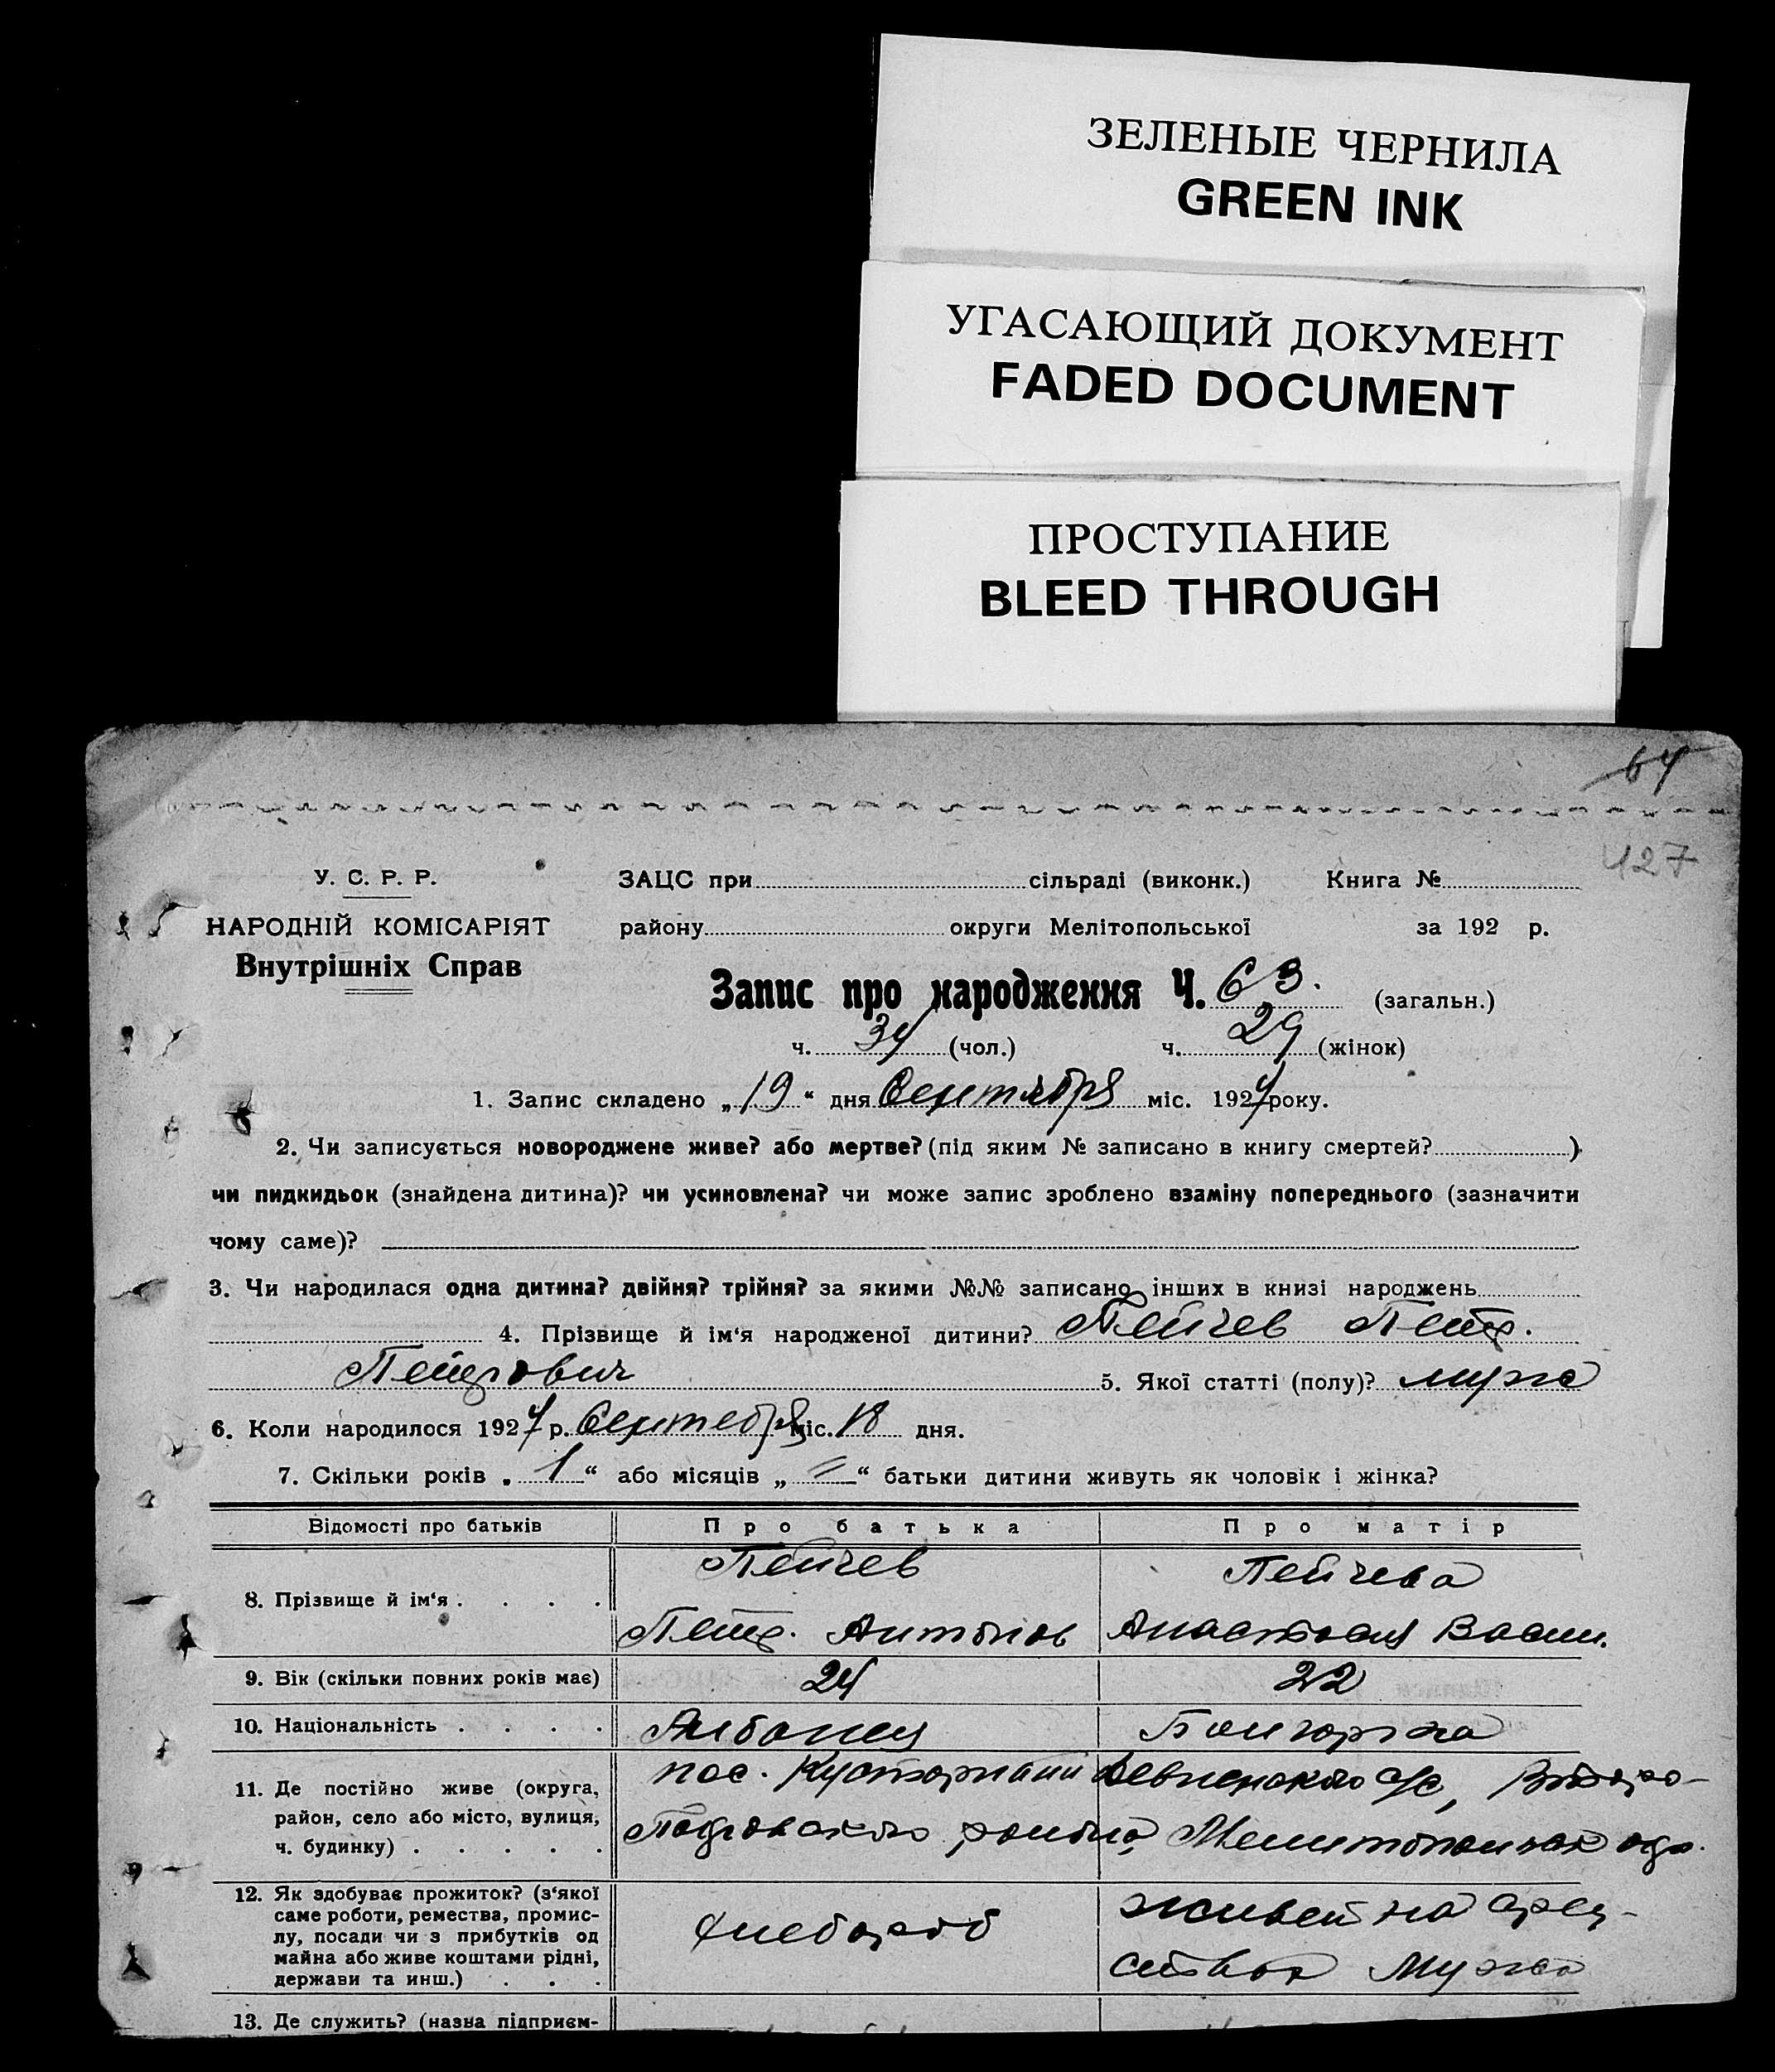 ЗЕЛЕНЫЕ ЧЕРНИЛА
GREEN INK
УГАСАЮЩИЙ ДОКУМЕНТ
FADED DOCUMENT
ПРОСТУПАНИЕ
BLEED THROUGH
64
427
У. С. Р. Р. ЗАЦС при сільраді (виконк.) Книга №
НАРОДНІЙ КОМІСАРІЯТ району округи Мелітопольської за 192 р.
Внутрішніх Справ
Запис про народження Ч. 63. (загальн.)
ч. 34 (чол.) ч. 29 (жінок)
1. Запис складено „19“ дня Сентября міс. 1924 року.
2. Чи записується новороджене живе? або мертве? (під яким № записано в книгу смертей? )
чи пидкидьок (знайдена дитина)? чи усиновлена? чи може запис зроблено взаміну попереднього (зазначити
чому саме)?
3. Чи народилася одна дитина? двійня? трійня? за якими №№ записано інших в книзі народжень
4. Прізвище й ім‘я народженої дитини? Пейчев Петр.
Петрович 5. Якої статті (полу)? муж
6. Коли народилося 1924 р. Сентебря міс. 18 дня.
7. Скільки років „1“ або місяців „=“ батьки дитини живуть як чоловік і жінка?
Відомості про батьків Про батька Про матір
Пейчев Пейчева
8. Прізвище й ім‘я . . . .
Петр. Антонов Анастасия Васил.
9. Вік (скільки повних років має) 24 22
10. Національність . . . . Албанец Болгарка
11. Де постійно живе (округа,
район, село або місто, вулиця,
ч. будинку) . . . . .
пос.
района, Мелитопольск окр.
12. Як здобуває прожиток? (з‘якої
саме роботи, ремества, промис-
лу, посади чи з прибутків од
майна або живе коштами рідні,
держави та инш.) . . .
хлебороб
живет на сред-
ства Мужа
13. Де служить? (назва підприєм-